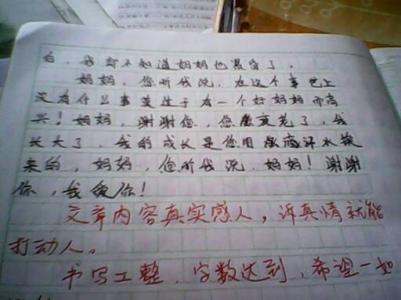 白，我都不知道妈妈也没睡了。
妈妈，您听我说，在这个事世上
没有什么事莫过于有一个好妈妈而高
兴！妈妈，谢谢您，您变老了，我
长大了，我的成长是您用血滴汗水换
来的，妈妈，您听我说，妈妈！谢谢
你，我爱你！
文章内容真实感人，诉真情就能
打动人。
书写工整，字数达到，希望一如